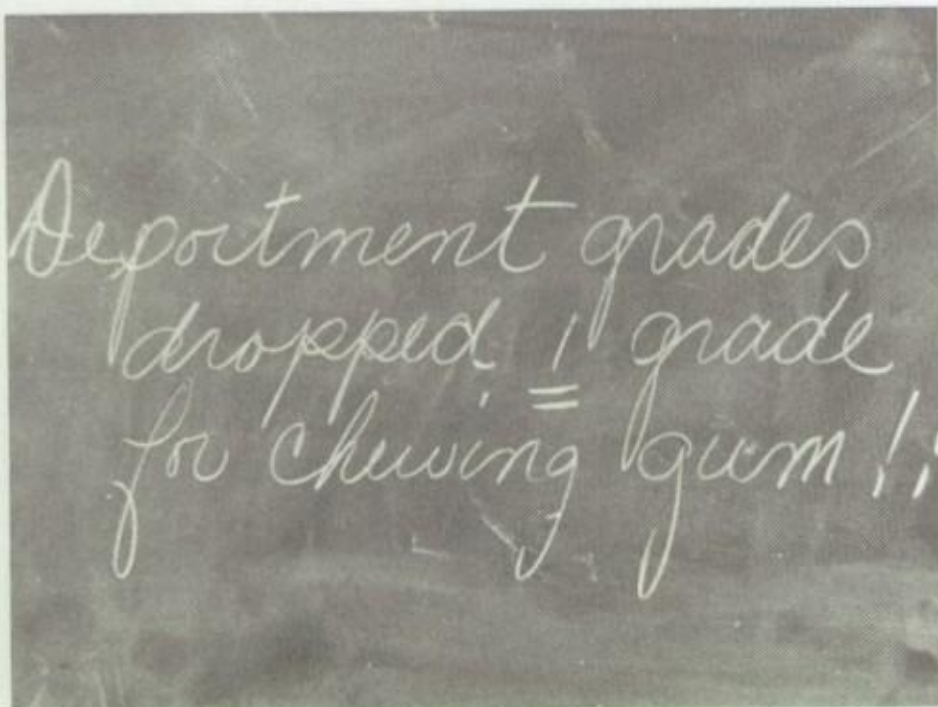 Deportment grades
dropped 1 grade
for chewing gum!!